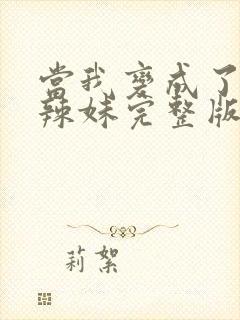 當我變成了
辣妹完整版
莉絮